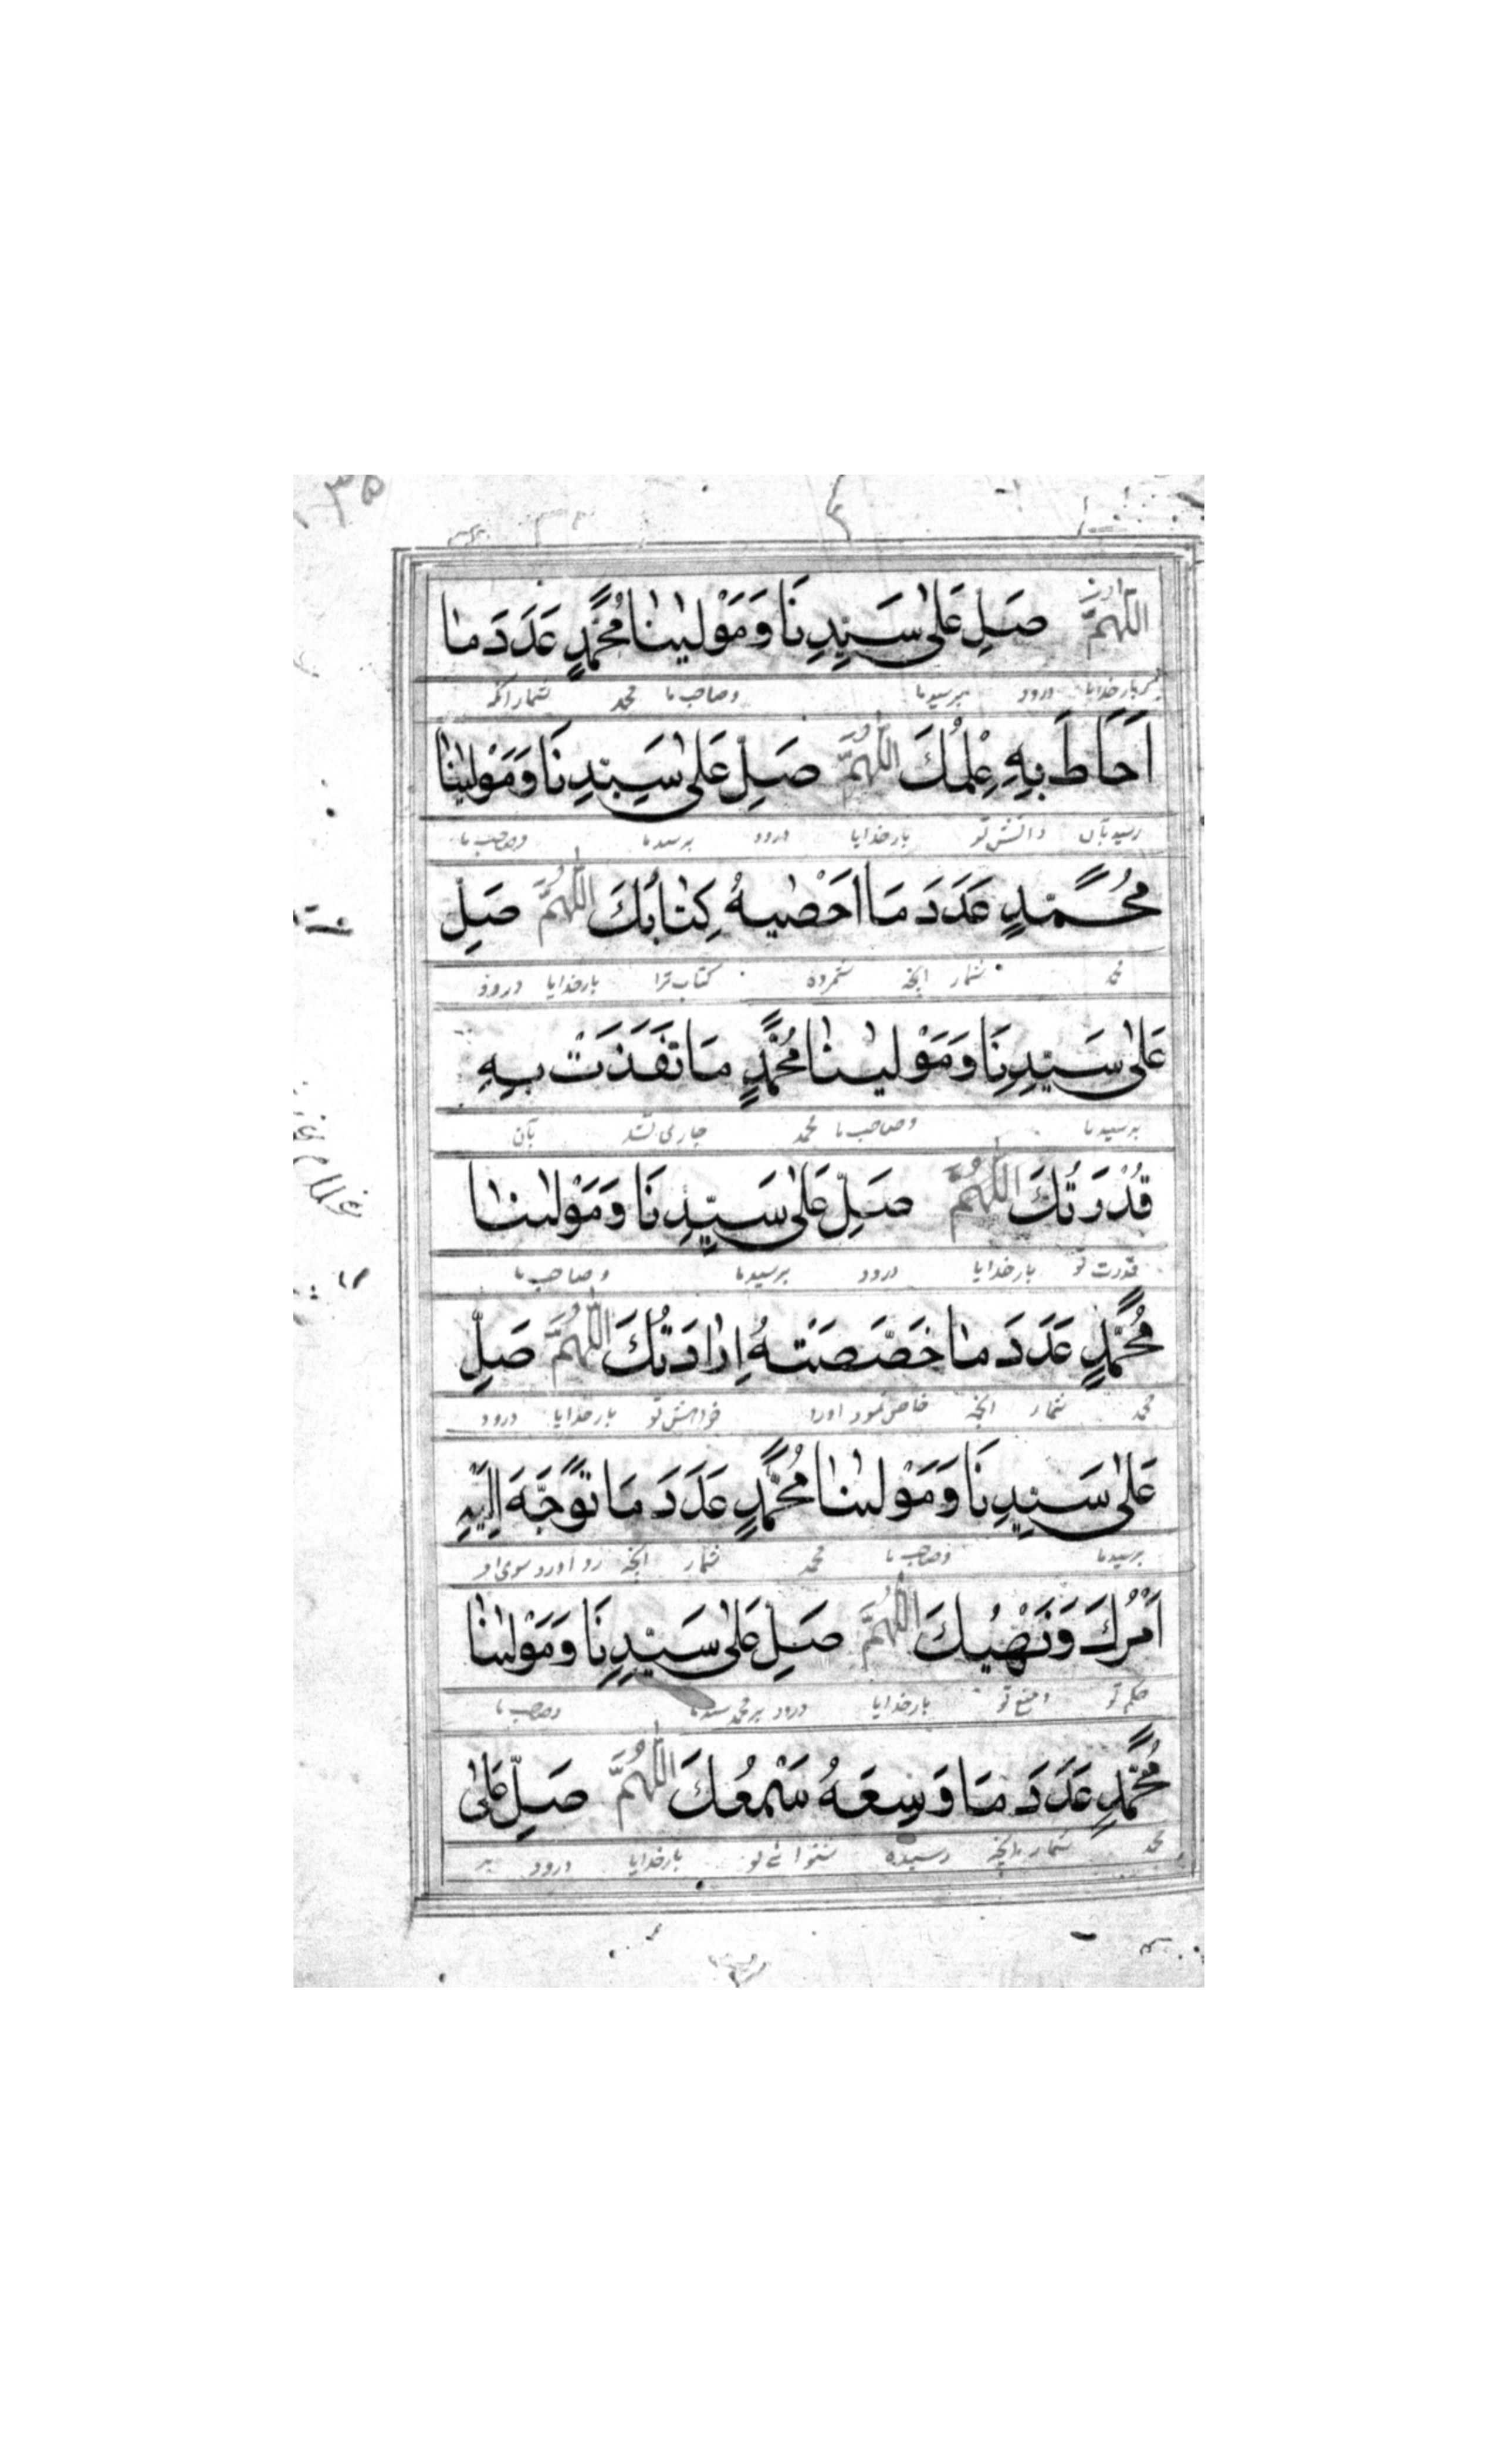 ٣٥
اللّٰهُمَّ صَلِّ عَلٰى سَيِّدِنَا وَمَوْلٰينَا مُحَمَّدٍ عَدَدَ مَا
بارخدایا درود برسیدما وصاحب ما محمد شمار آنکه
اَحَاطَ بِهٖ عِلْمُكَ اللّٰهُمَّ صَلِّ عَلٰى سَيِّدِنَا وَمَوْلٰينَا
رسید بآن دانش تو بارخدایا درود برسیدما وصاحب ما
مُحَمَّدٍ عَدَدَ مَا اَحْصٰيهُ كِتَابُكَ اللّٰهُمَّ صَلِّ
محمد شمار انچه شمرده کتاب ترا بارخدایا درود
عَلٰى سَيِّدِنَا وَمَوْلٰينَا مُحَمَّدٍ مَا نَفَذَتْ بِهٖ
برسیدما وصاحب ما محمد جاری شد بآن
قُدْرَتُكَ اللّٰهُمَّ صَلِّ عَلٰى سَيِّدِنَا وَمَوْلٰىنَا
قدرت تو بارخدایا درود برسیدما وصاحب ما
مُحَمَّدٍ عَدَدَ مَا خَصَّصَتْهُ اِرَادَتُكَ اللّٰهُمَّ صَلِّ
محمد شمار انچه خاص نمود اورا خواهش تو بارخدایا درود
عَلٰى سَيِّدِنَا وَمَوْلٰىنَا مُحَمَّدٍ عَدَدَ مَا تَوَجَّهَ اِلَيْهِ
برسیدما وصاحب ما محمد شمار انچه رو اورد سوی او
اَمْرُكَ وَنَهْيُكَ اللّٰهُمَّ صَلِّ عَلٰى سَيِّدِنَا وَمَوْلٰىنَا
حکم تو ومنع تو بارخدایا درود بر محمد سیدما وصاحب ما
مُحَمَّدٍ عَدَدَ مَا وَسِعَهُ سَمْعُكَ اللّٰهُمَّ صَلِّ عَلٰى
محمد شمار انچه رسیده شنوائے تو بارخدایا درود بر